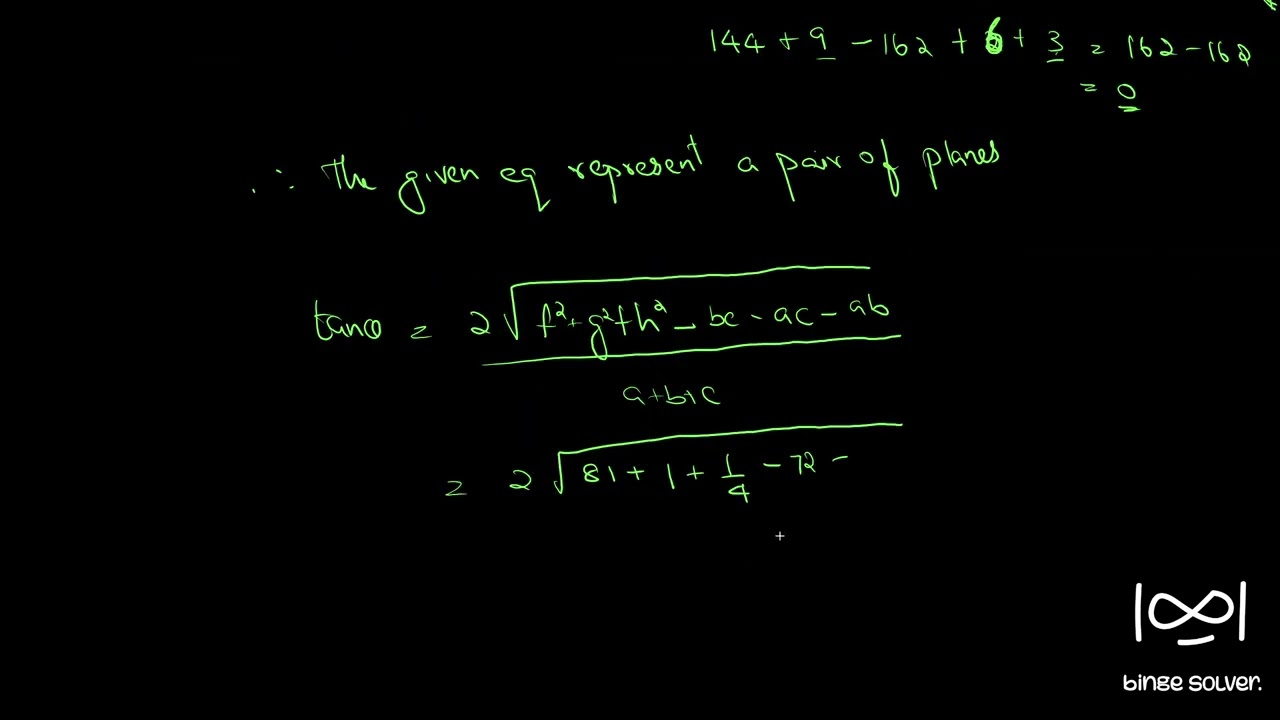 144 + 9 - 162 + 6 + 3 = 162 - 162
= 0
∴ The given eq represent a pair of planes
tanθ = 2√(f² + g² + h² - bc - ac - ab)
a+b+c
= 2√(81 + 1 + 1/4 - 72 -
binge solver.